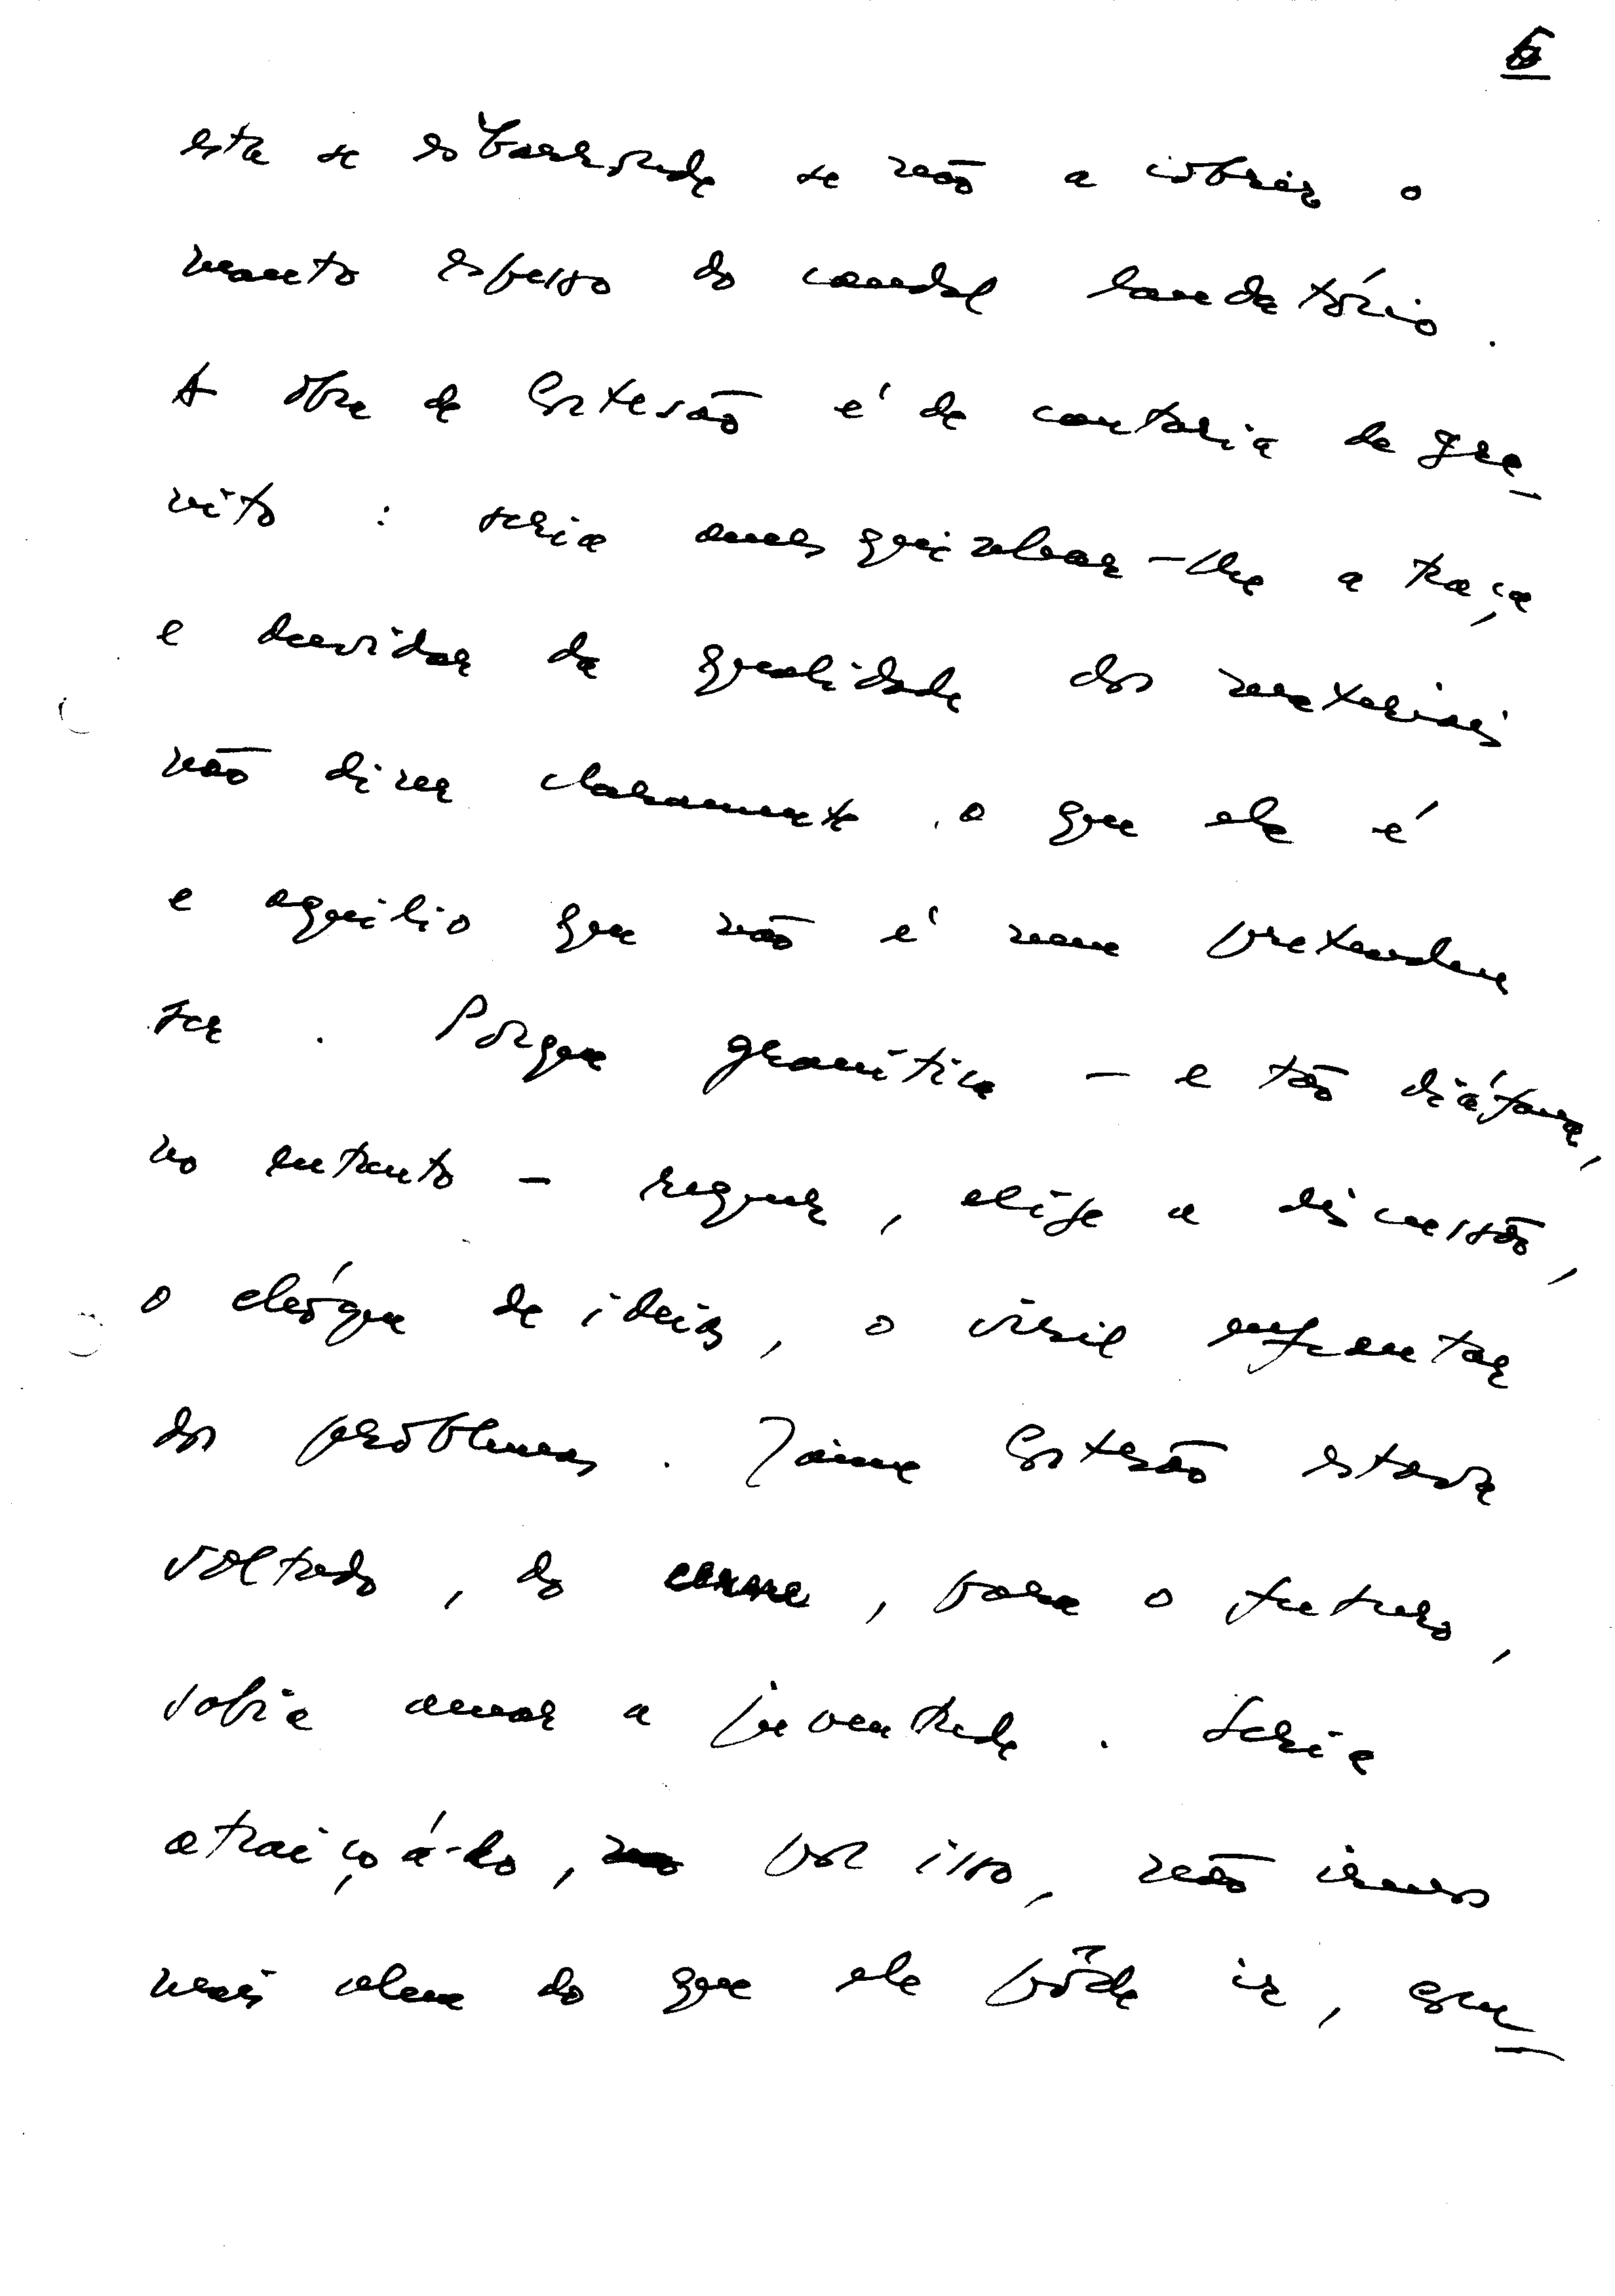 6
esta se esbarronde se não a cobrir o
manto espesso do caudal laudatório.
A obra de Cortesão é de cantaria de gra-
nito: seria amesquinhar-lhe a traça
e duvidar da qualidade dos materiais
não dizer claramente o que ela é
e aquilo que não é nem pretendeu
ser. Porque granítica - e tão diáfana,
no entanto - requer, exige a discussão,
o choque de ideias, o viril enfrentar
dos problemas. Jaime Cortesão estava
voltado, do cerne, para o futuro,
sabia amar a juventude. Seria
atraiçoá-lo, por isso, não irmos
mais além do que ele pôde ir, con-